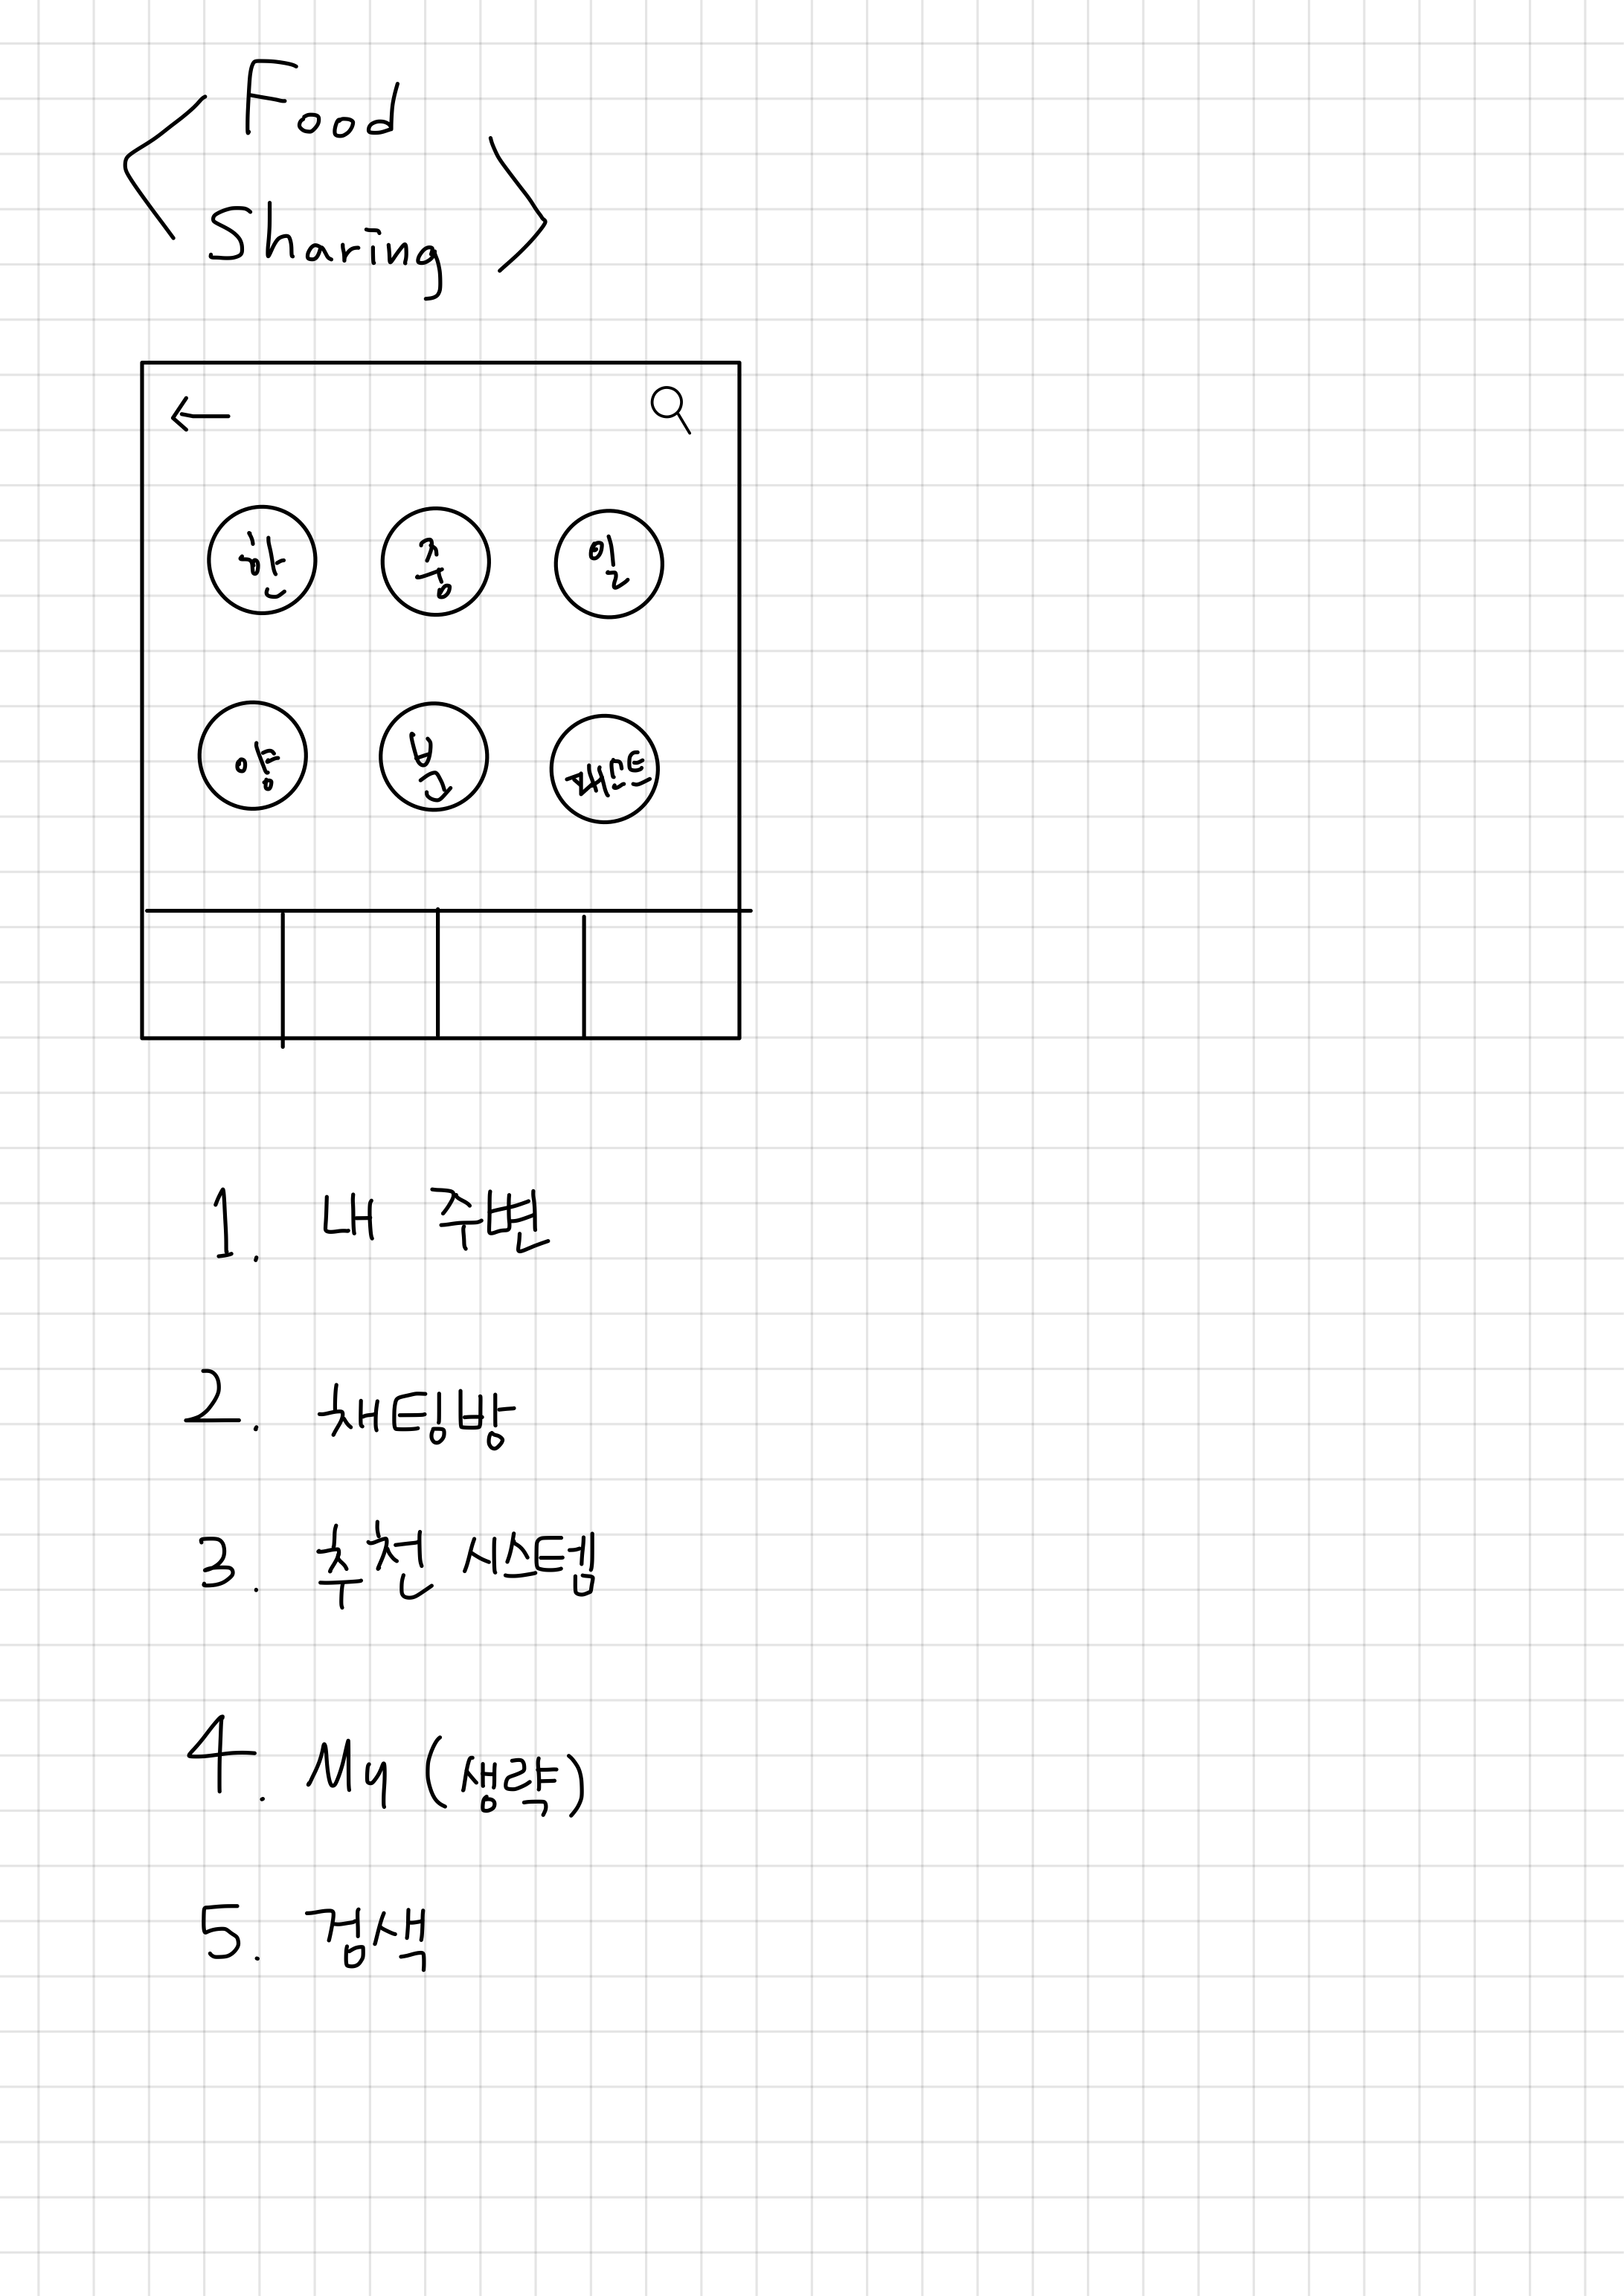 < Food
Sharing >
한 중 일
양
1. 내 주변
2. 채팅방
3. 추천 시스템
4. My (생략)
5. 검색